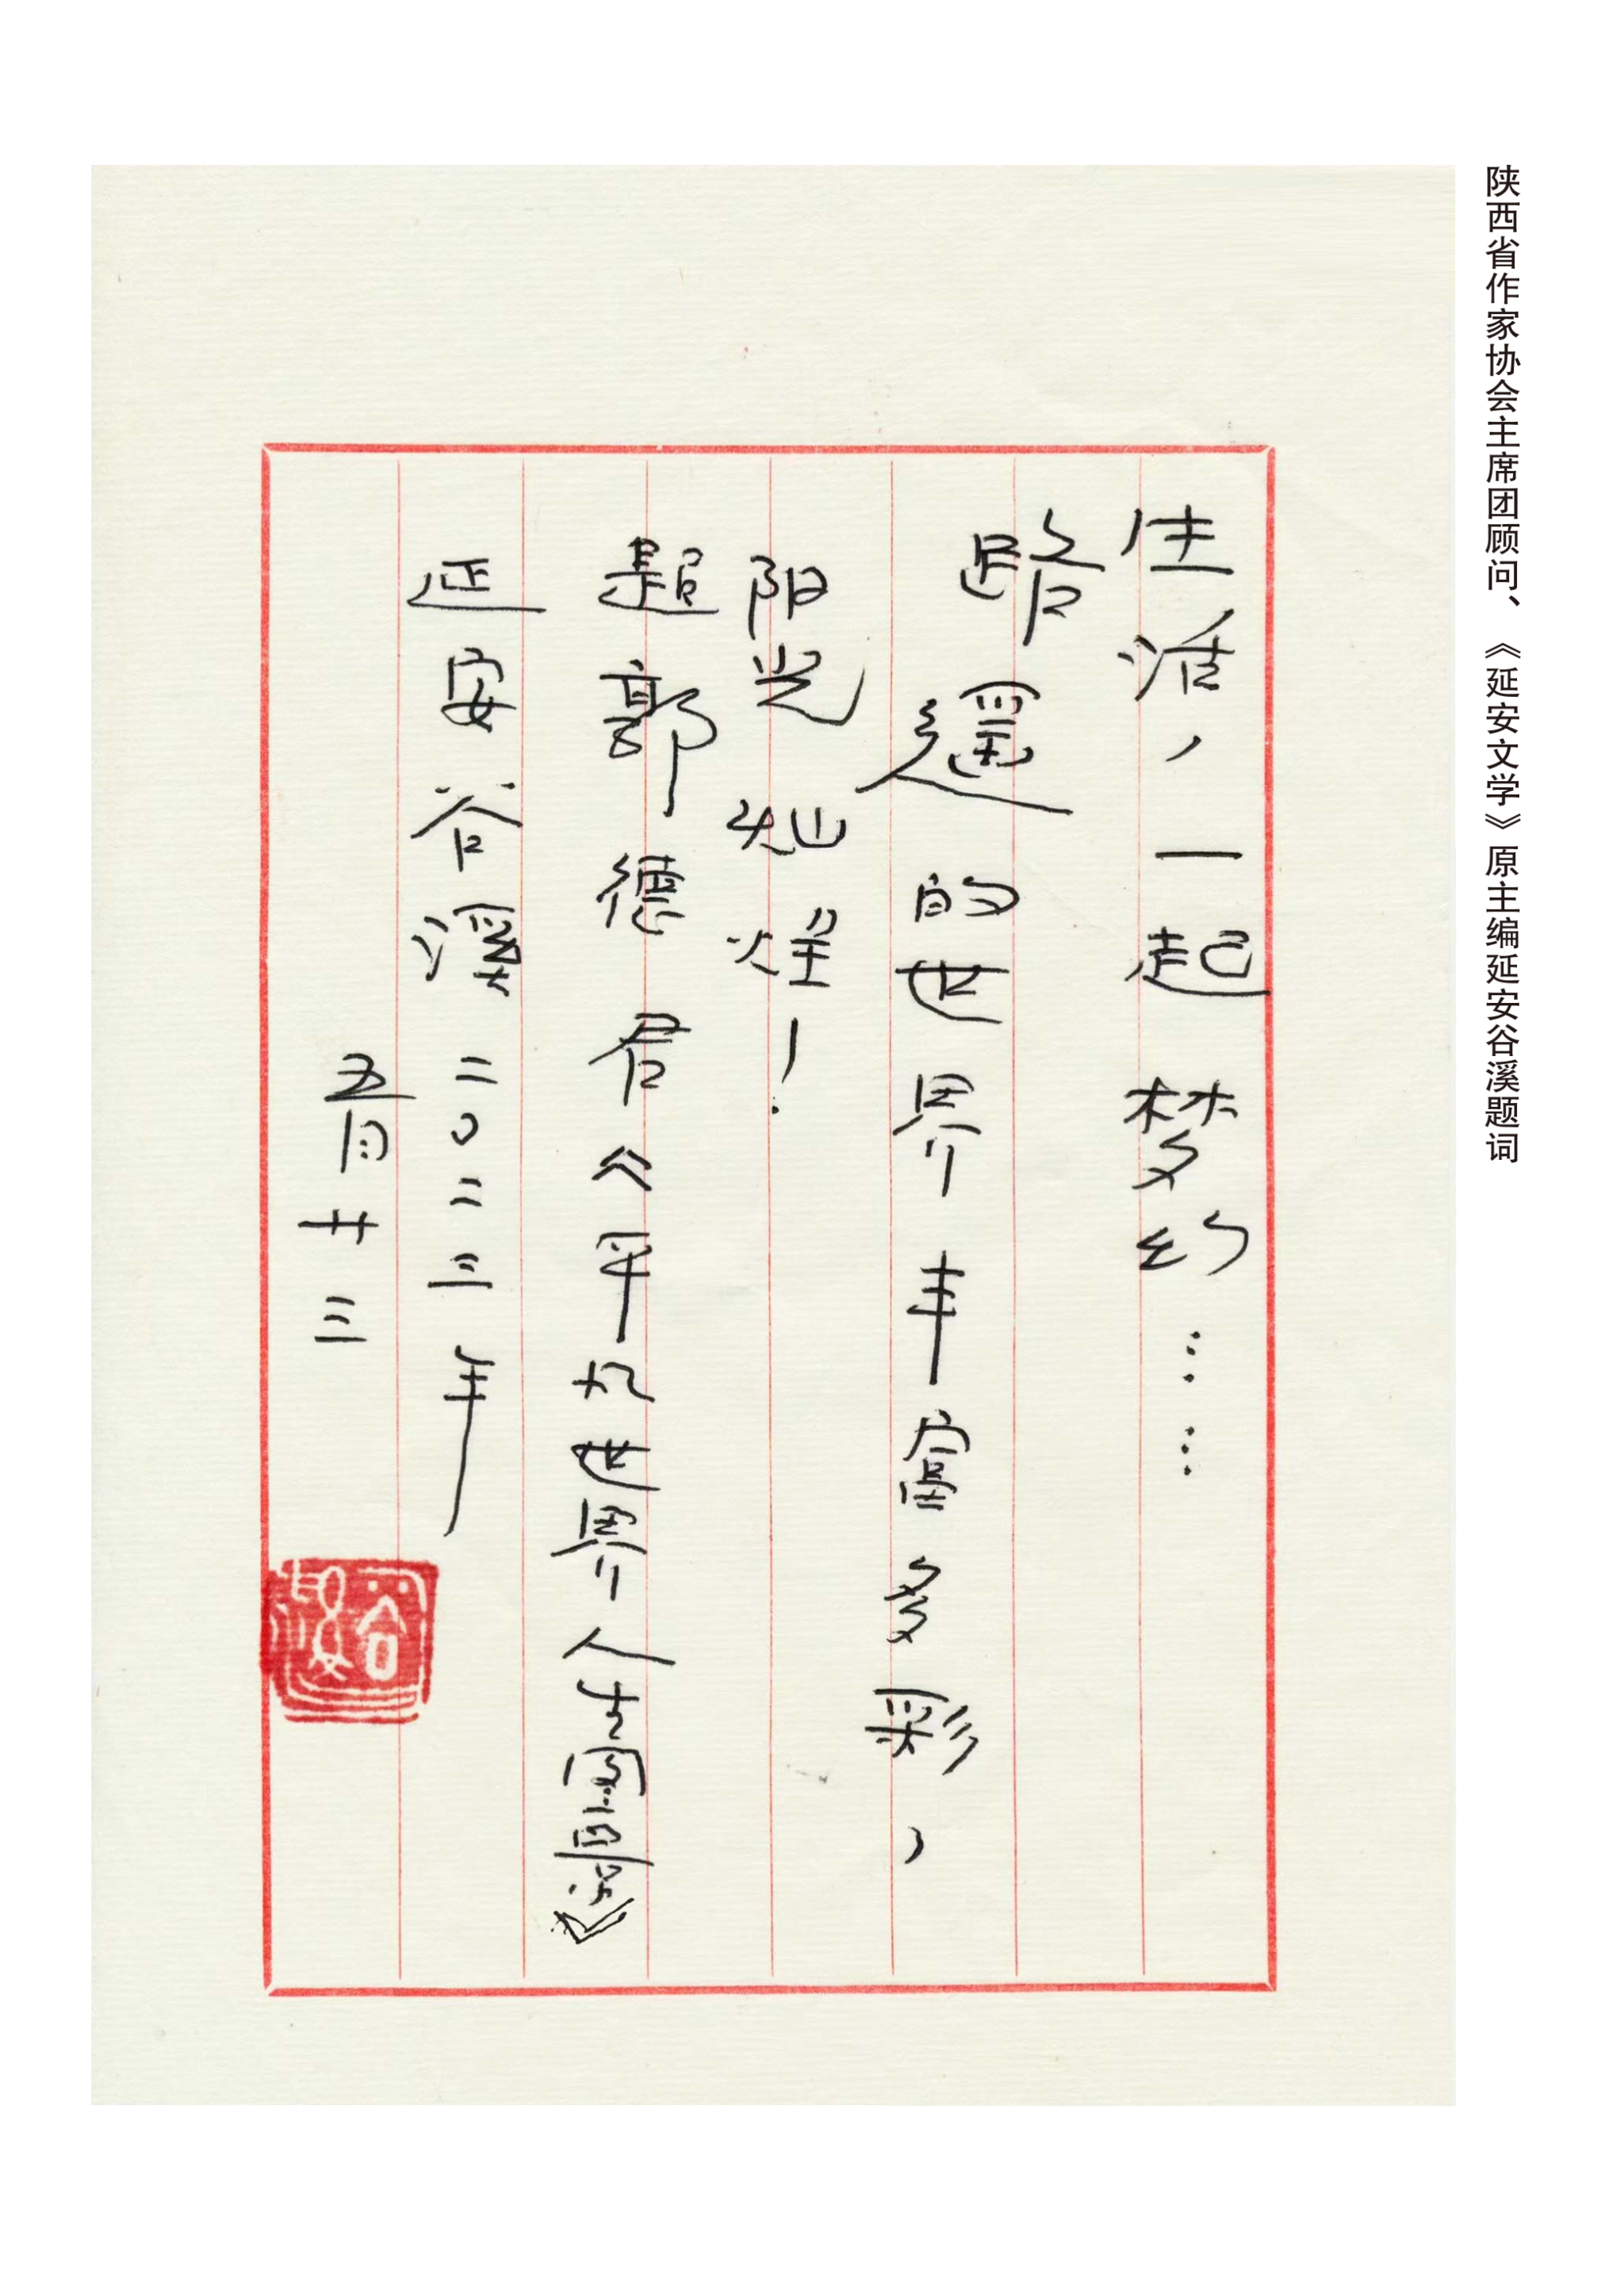 陕西省作家协会主席团顾问、《延安文学》原主编延安谷溪题词
生活，一起梦幻……
路遥的世界丰富多彩，
阳光灿烂！
题郭德君《平凡世界人生图景》
延安谷溪 二〇二三年
五月廿三
谷溪